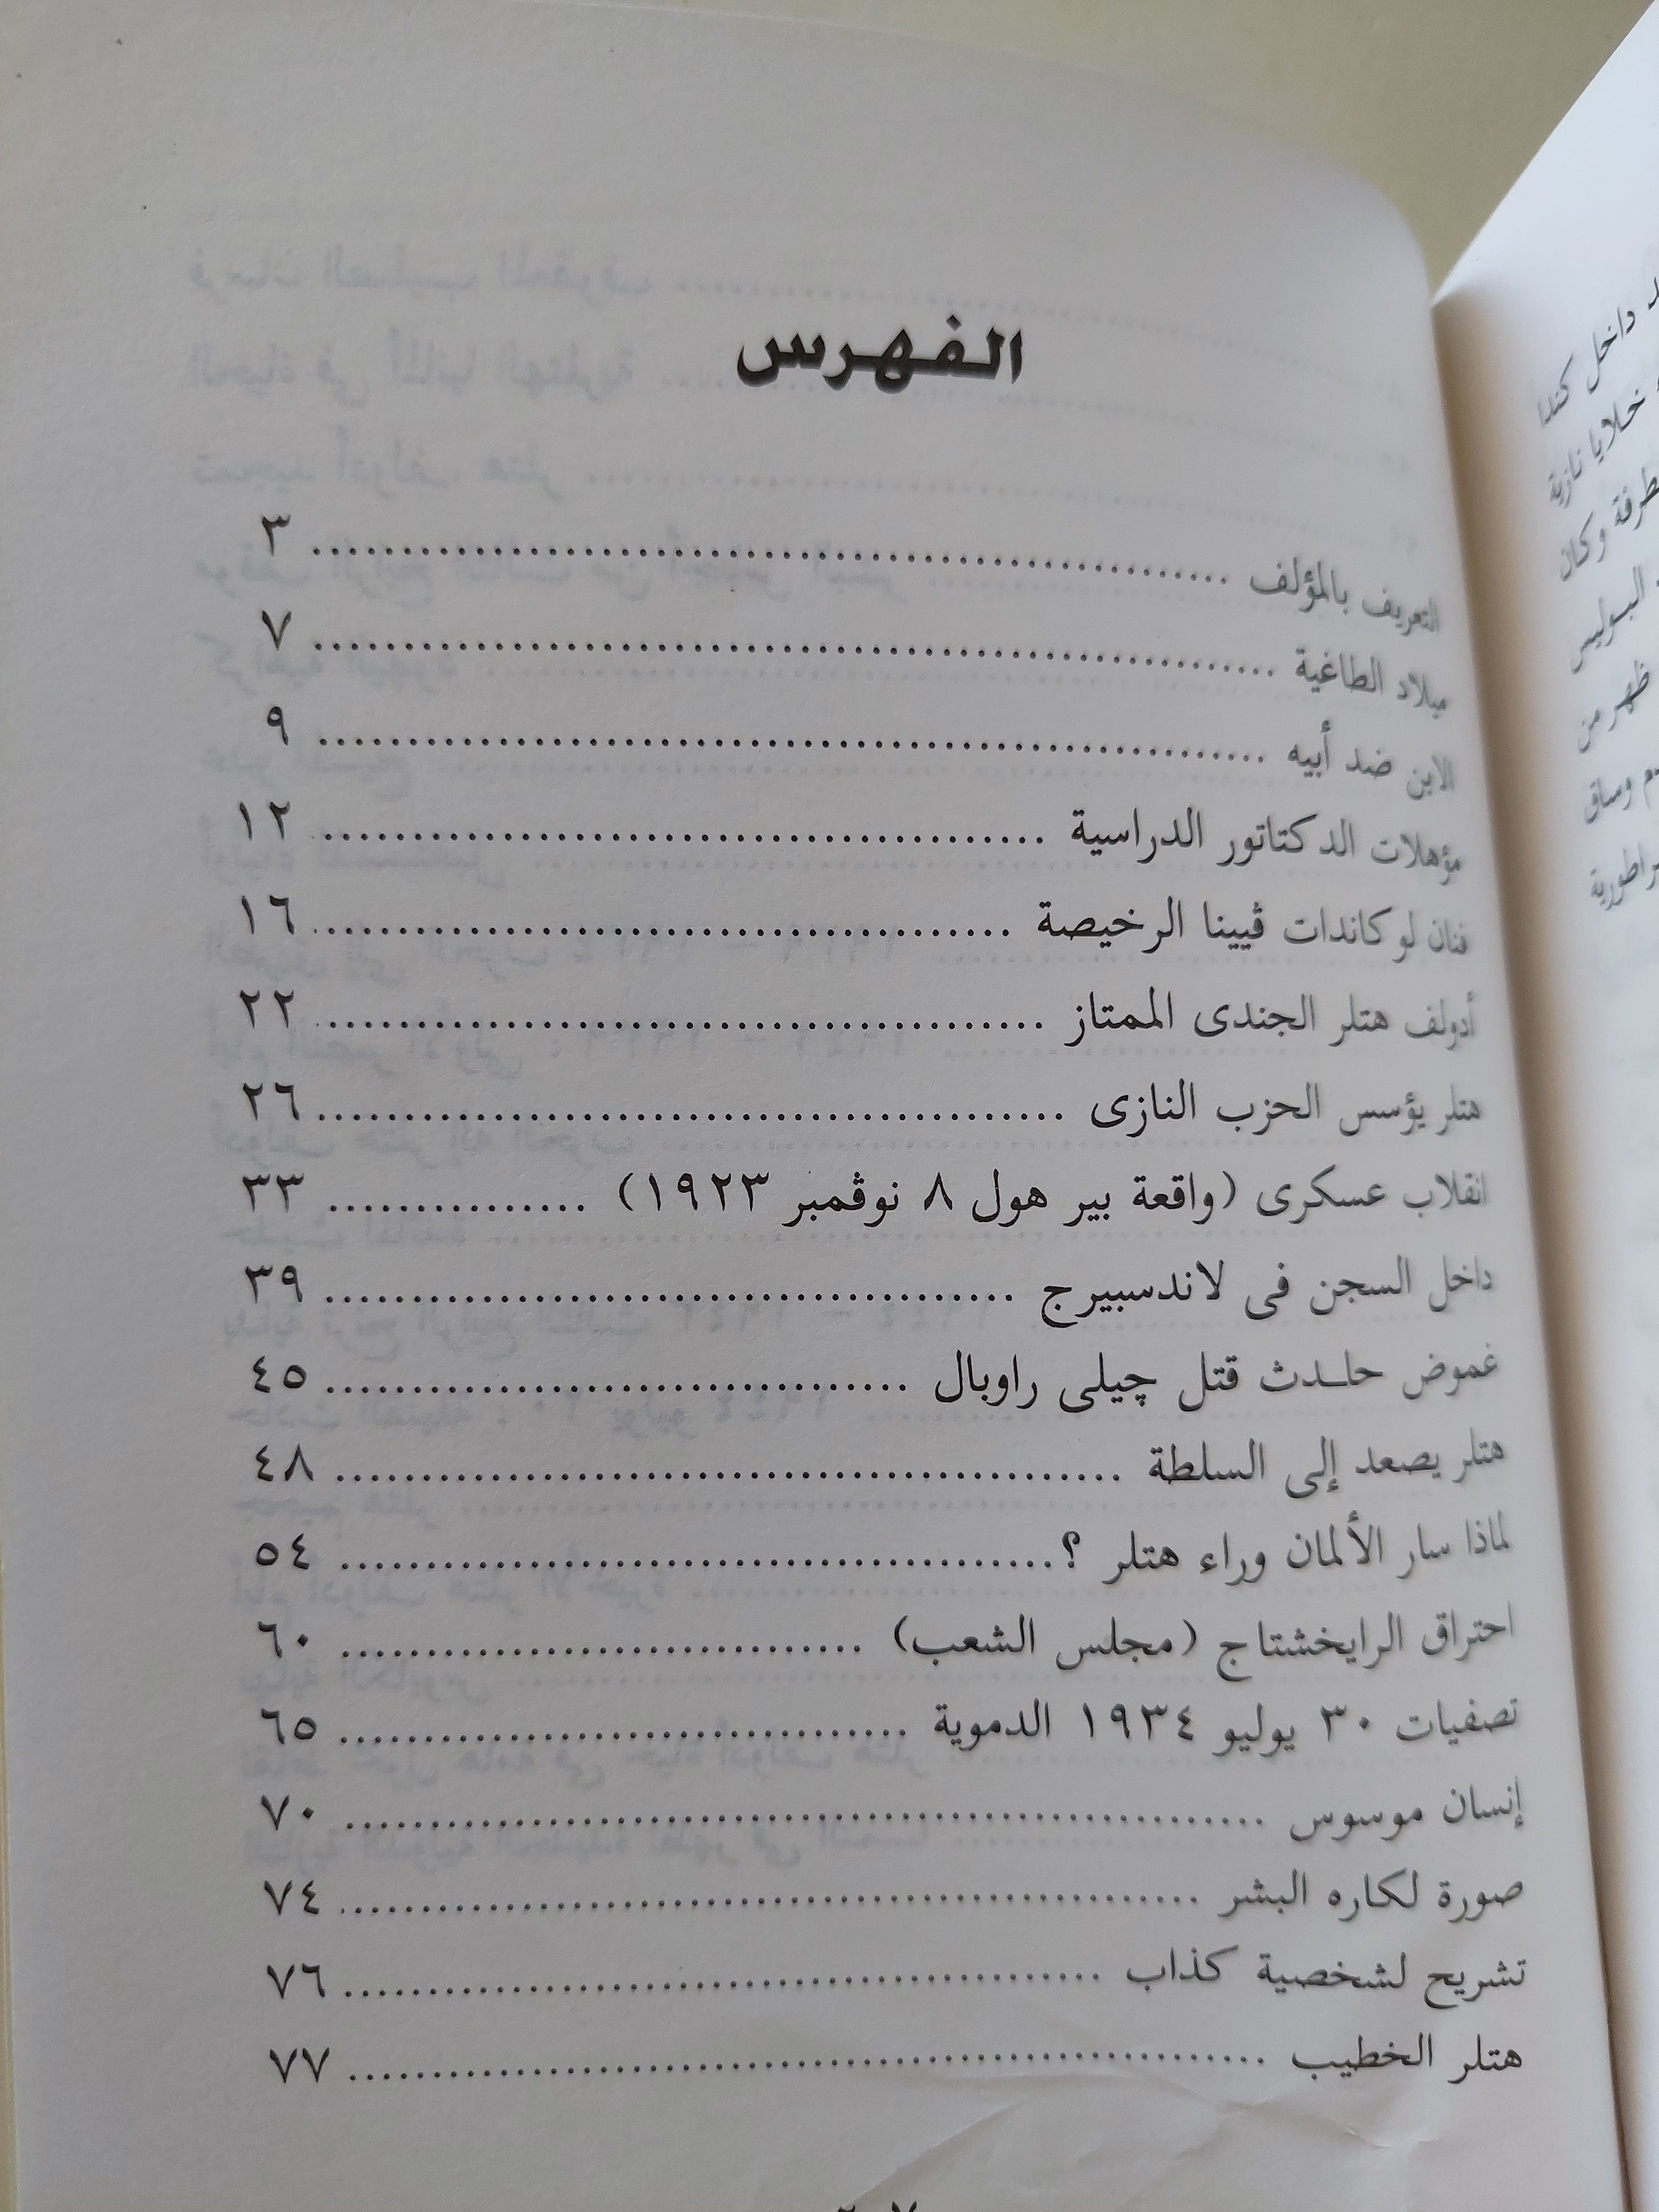 الفهرس
التعريف بالمؤلف ........................................ ٣
ميلاد الطاغية ........................................ ٧
الابن ضد أبيه ........................................ ٩
مؤهلات الدكتاتور الدراسية ........................................ ١٢
فنان لوكاندات ڤيينا الرخيصة ........................................ ١٦
أدولف هتلر الجندى الممتاز ........................................ ٢٢
هتلر يؤسس الحزب النازى ........................................ ٢٦
انقلاب عسكرى (واقعة بير هول ٨ نوڤمبر ١٩٢٣) ................ ٣٣
داخل السجن فى لاندسبيرج ........................................ ٣٩
غموض حادث قتل چيلى راوبال ................................ ٤٥
هتلر يصعد إلى السلطة ........................................ ٤٨
لماذا سار الألمان وراء هتلر ؟ ........................................ ٥٤
احتراق الرايخشتاج (مجلس الشعب) ................................ ٦٠
تصفيات ٣٠ يوليو ١٩٣٤ الدموية ................................ ٦٥
إنسان موسوس ........................................ ٧٠
صورة لكاره البشر ........................................ ٧٤
تشريح لشخصية كذاب ........................................ ٧٦
هتلر الخطيب ........................................ ٧٧
داخل كندا
خلايا نازية
وكان
البوليس
ظهر من
وساق